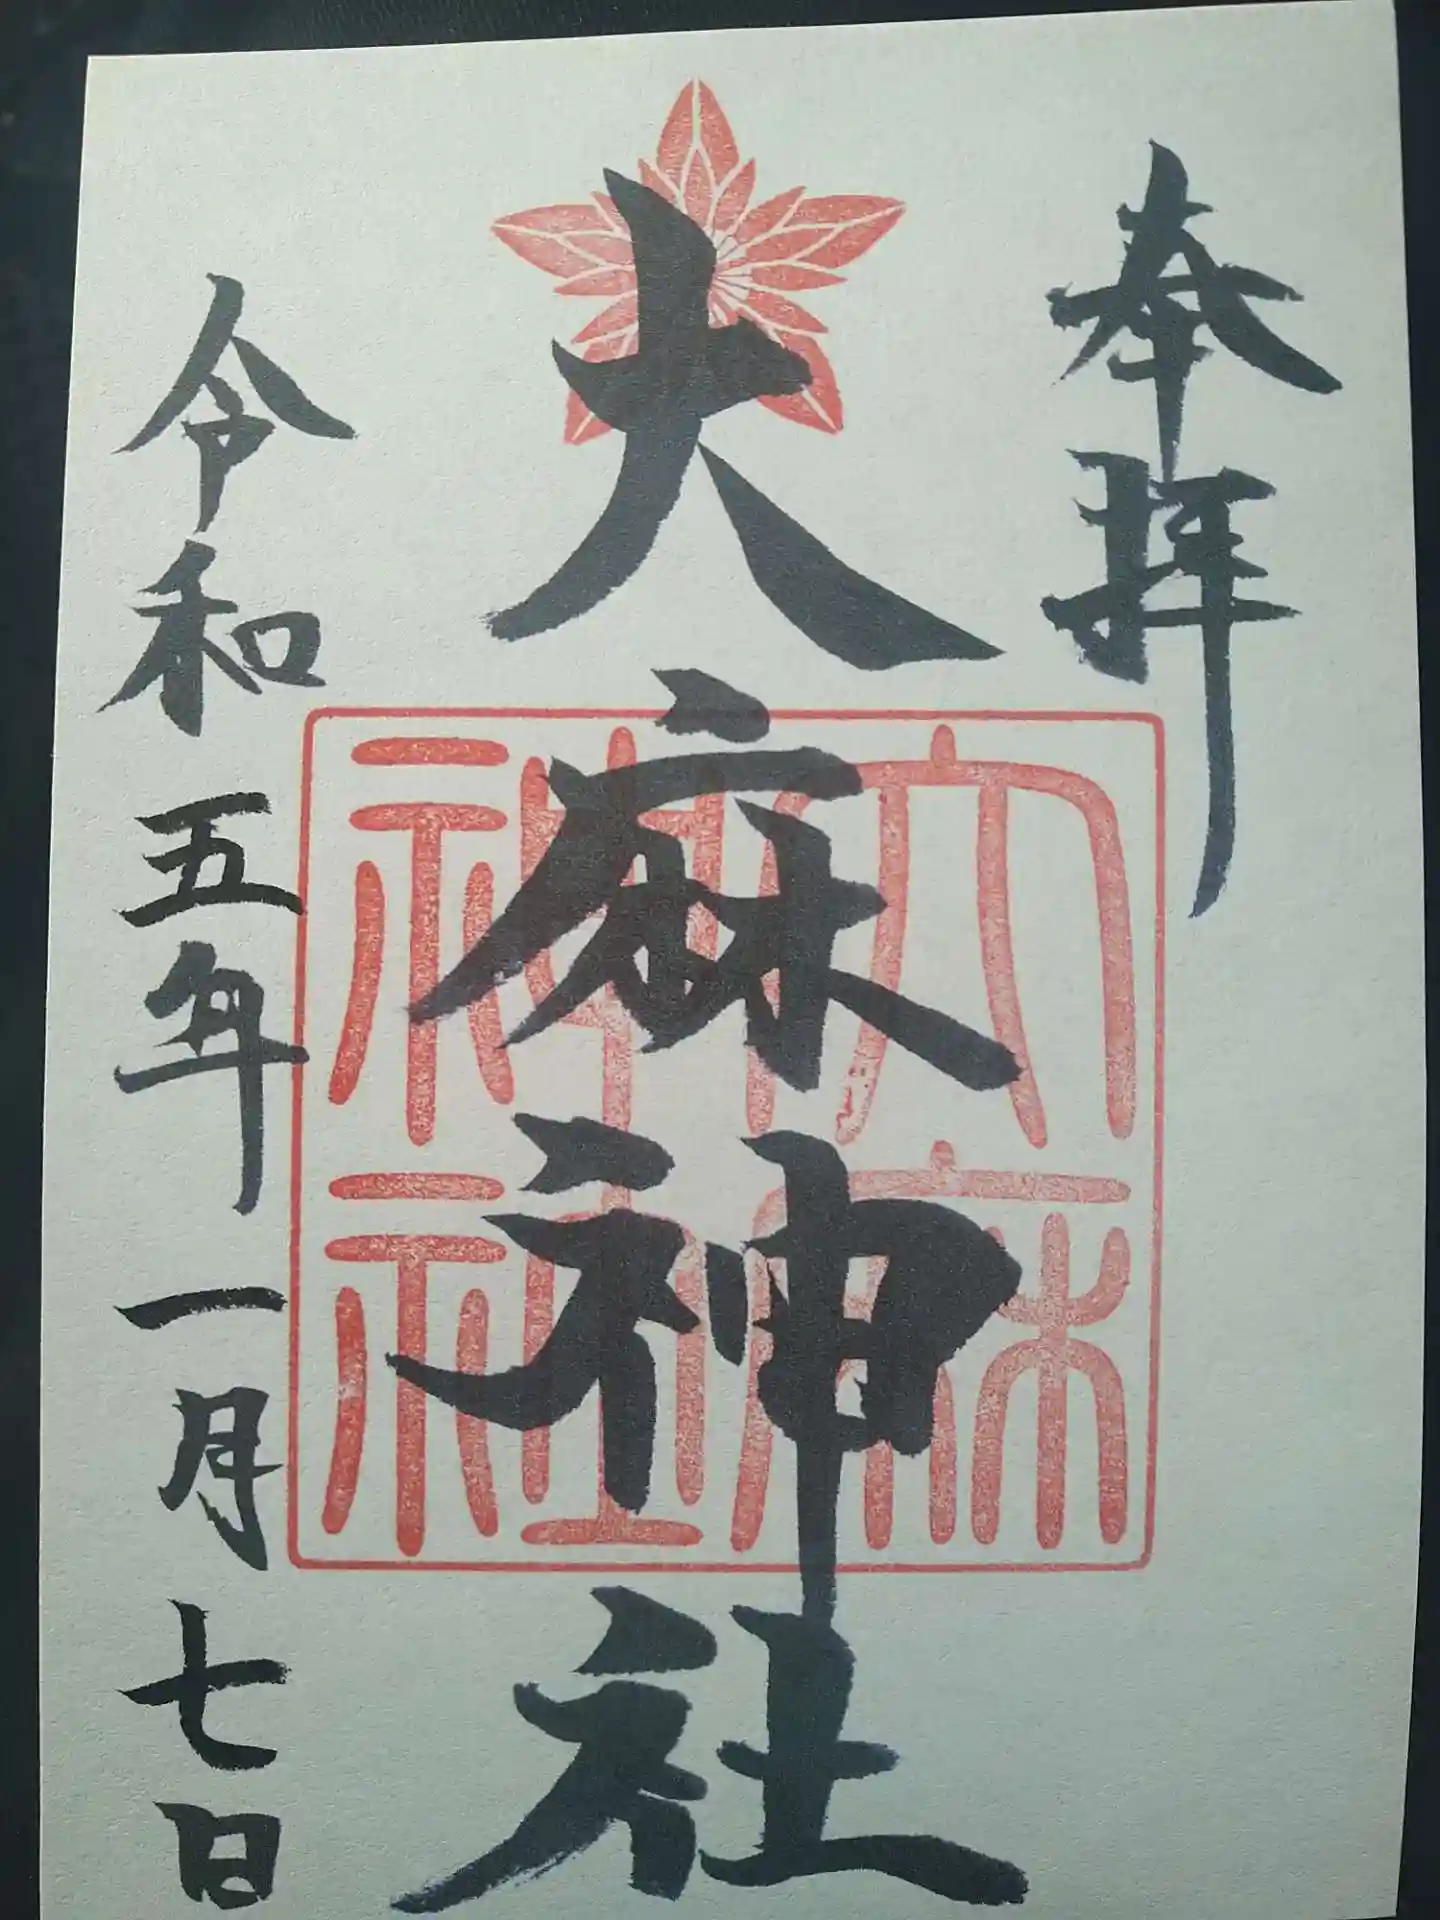 奉拝
大麻神社
大麻
神社
令和五年一月七日